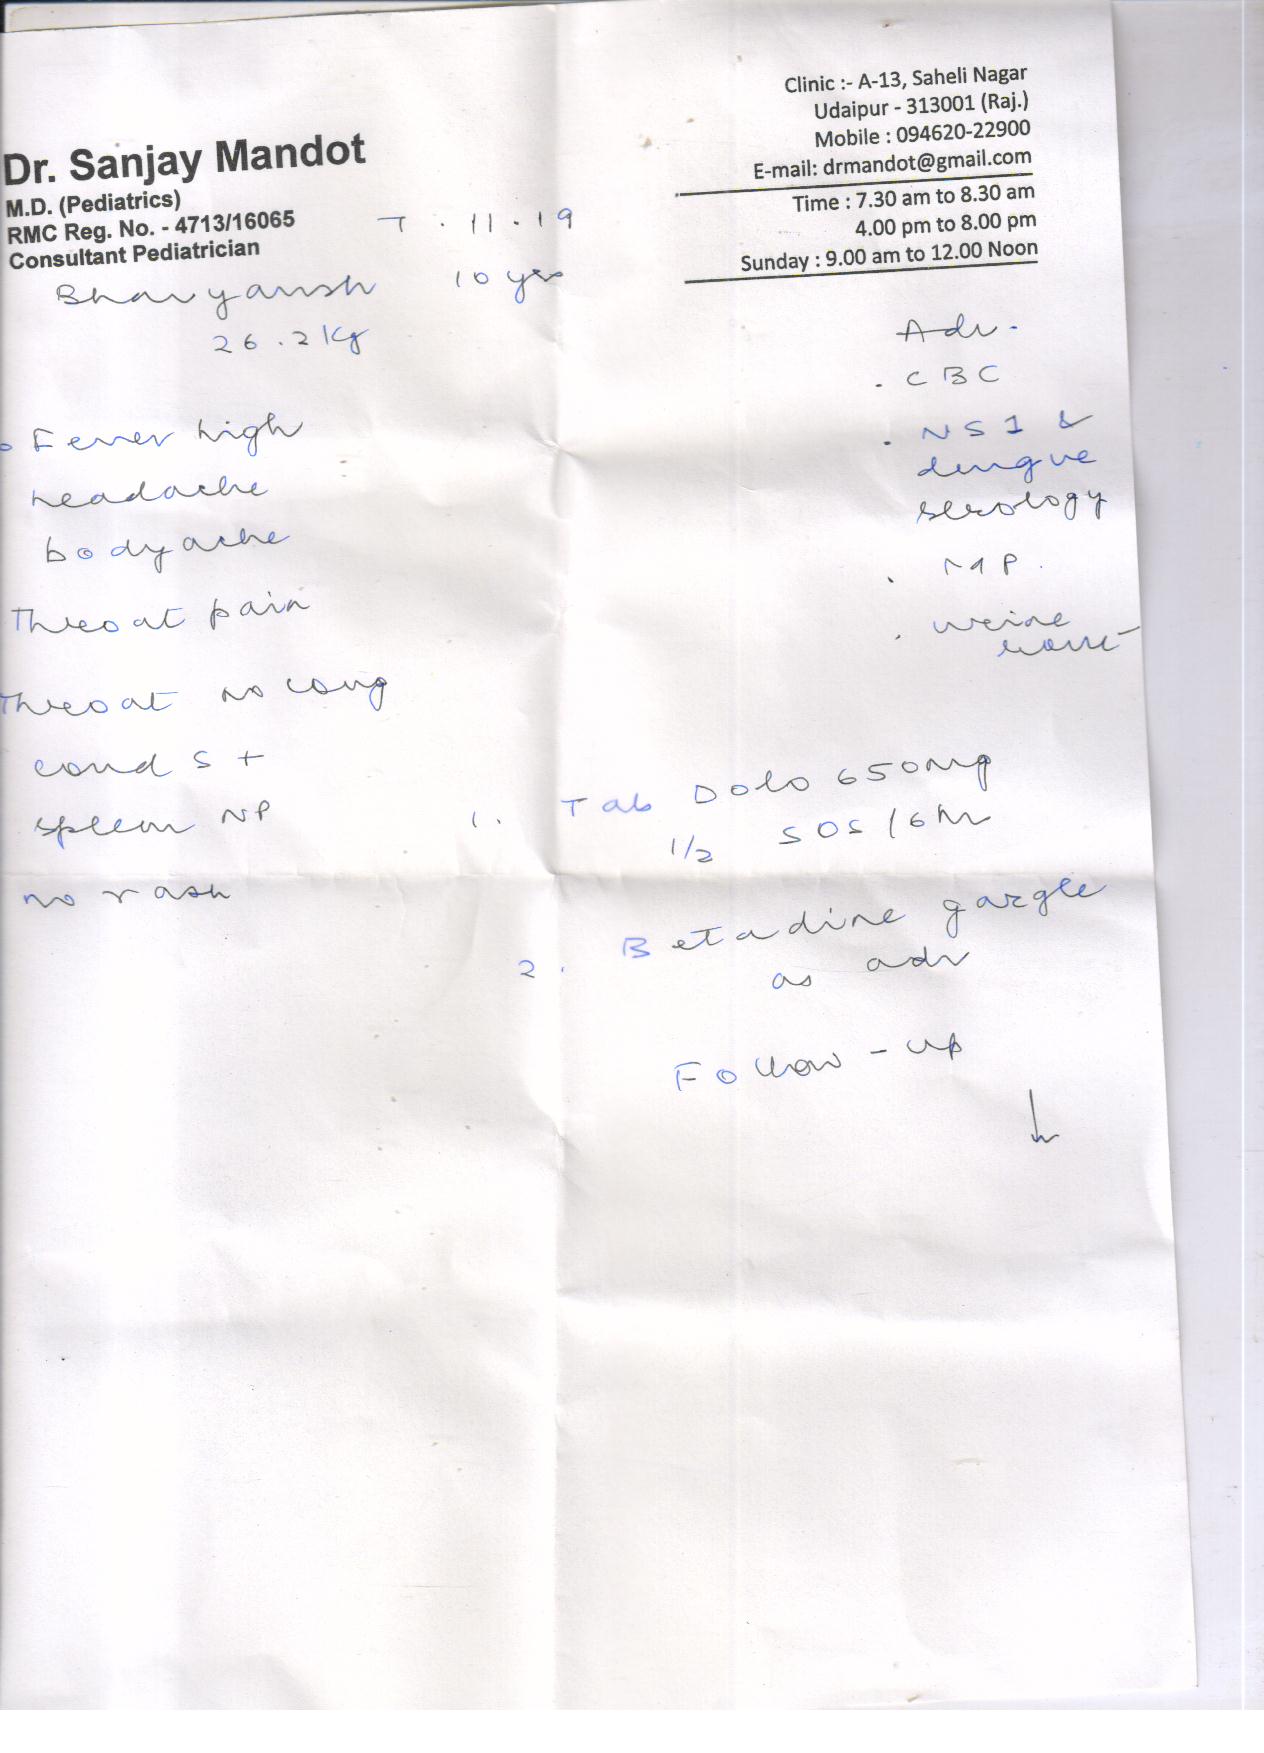 Dr. Sanjay Mandot
M.D. (Pediatrics)
RMC Reg. No. - 4713/16065
Consultant Pediatrician
Clinic :- A-13, Saheli Nagar
Udaipur - 313001 (Raj.)
Mobile : 094620-22900
E-mail: drmandot@gmail.com
Time : 7.30 am to 8.30 am
4.00 pm to 8.00 pm
Sunday : 9.00 am to 12.00 Noon
7 . 11 . 19
Bhavyansh 10 yrs
26.2 kg
Fever high
headache
bodyache
Throat pain
Throat no cong
cond S +
spleen NP
no rash
Adv.
. CBC
. NS1 &
dengue
serology
. MP.
. urine
1. Tab Dolo 650mg
1/2 SOS / 6 hr
2. Betadine gargle
as adv
Follow-up